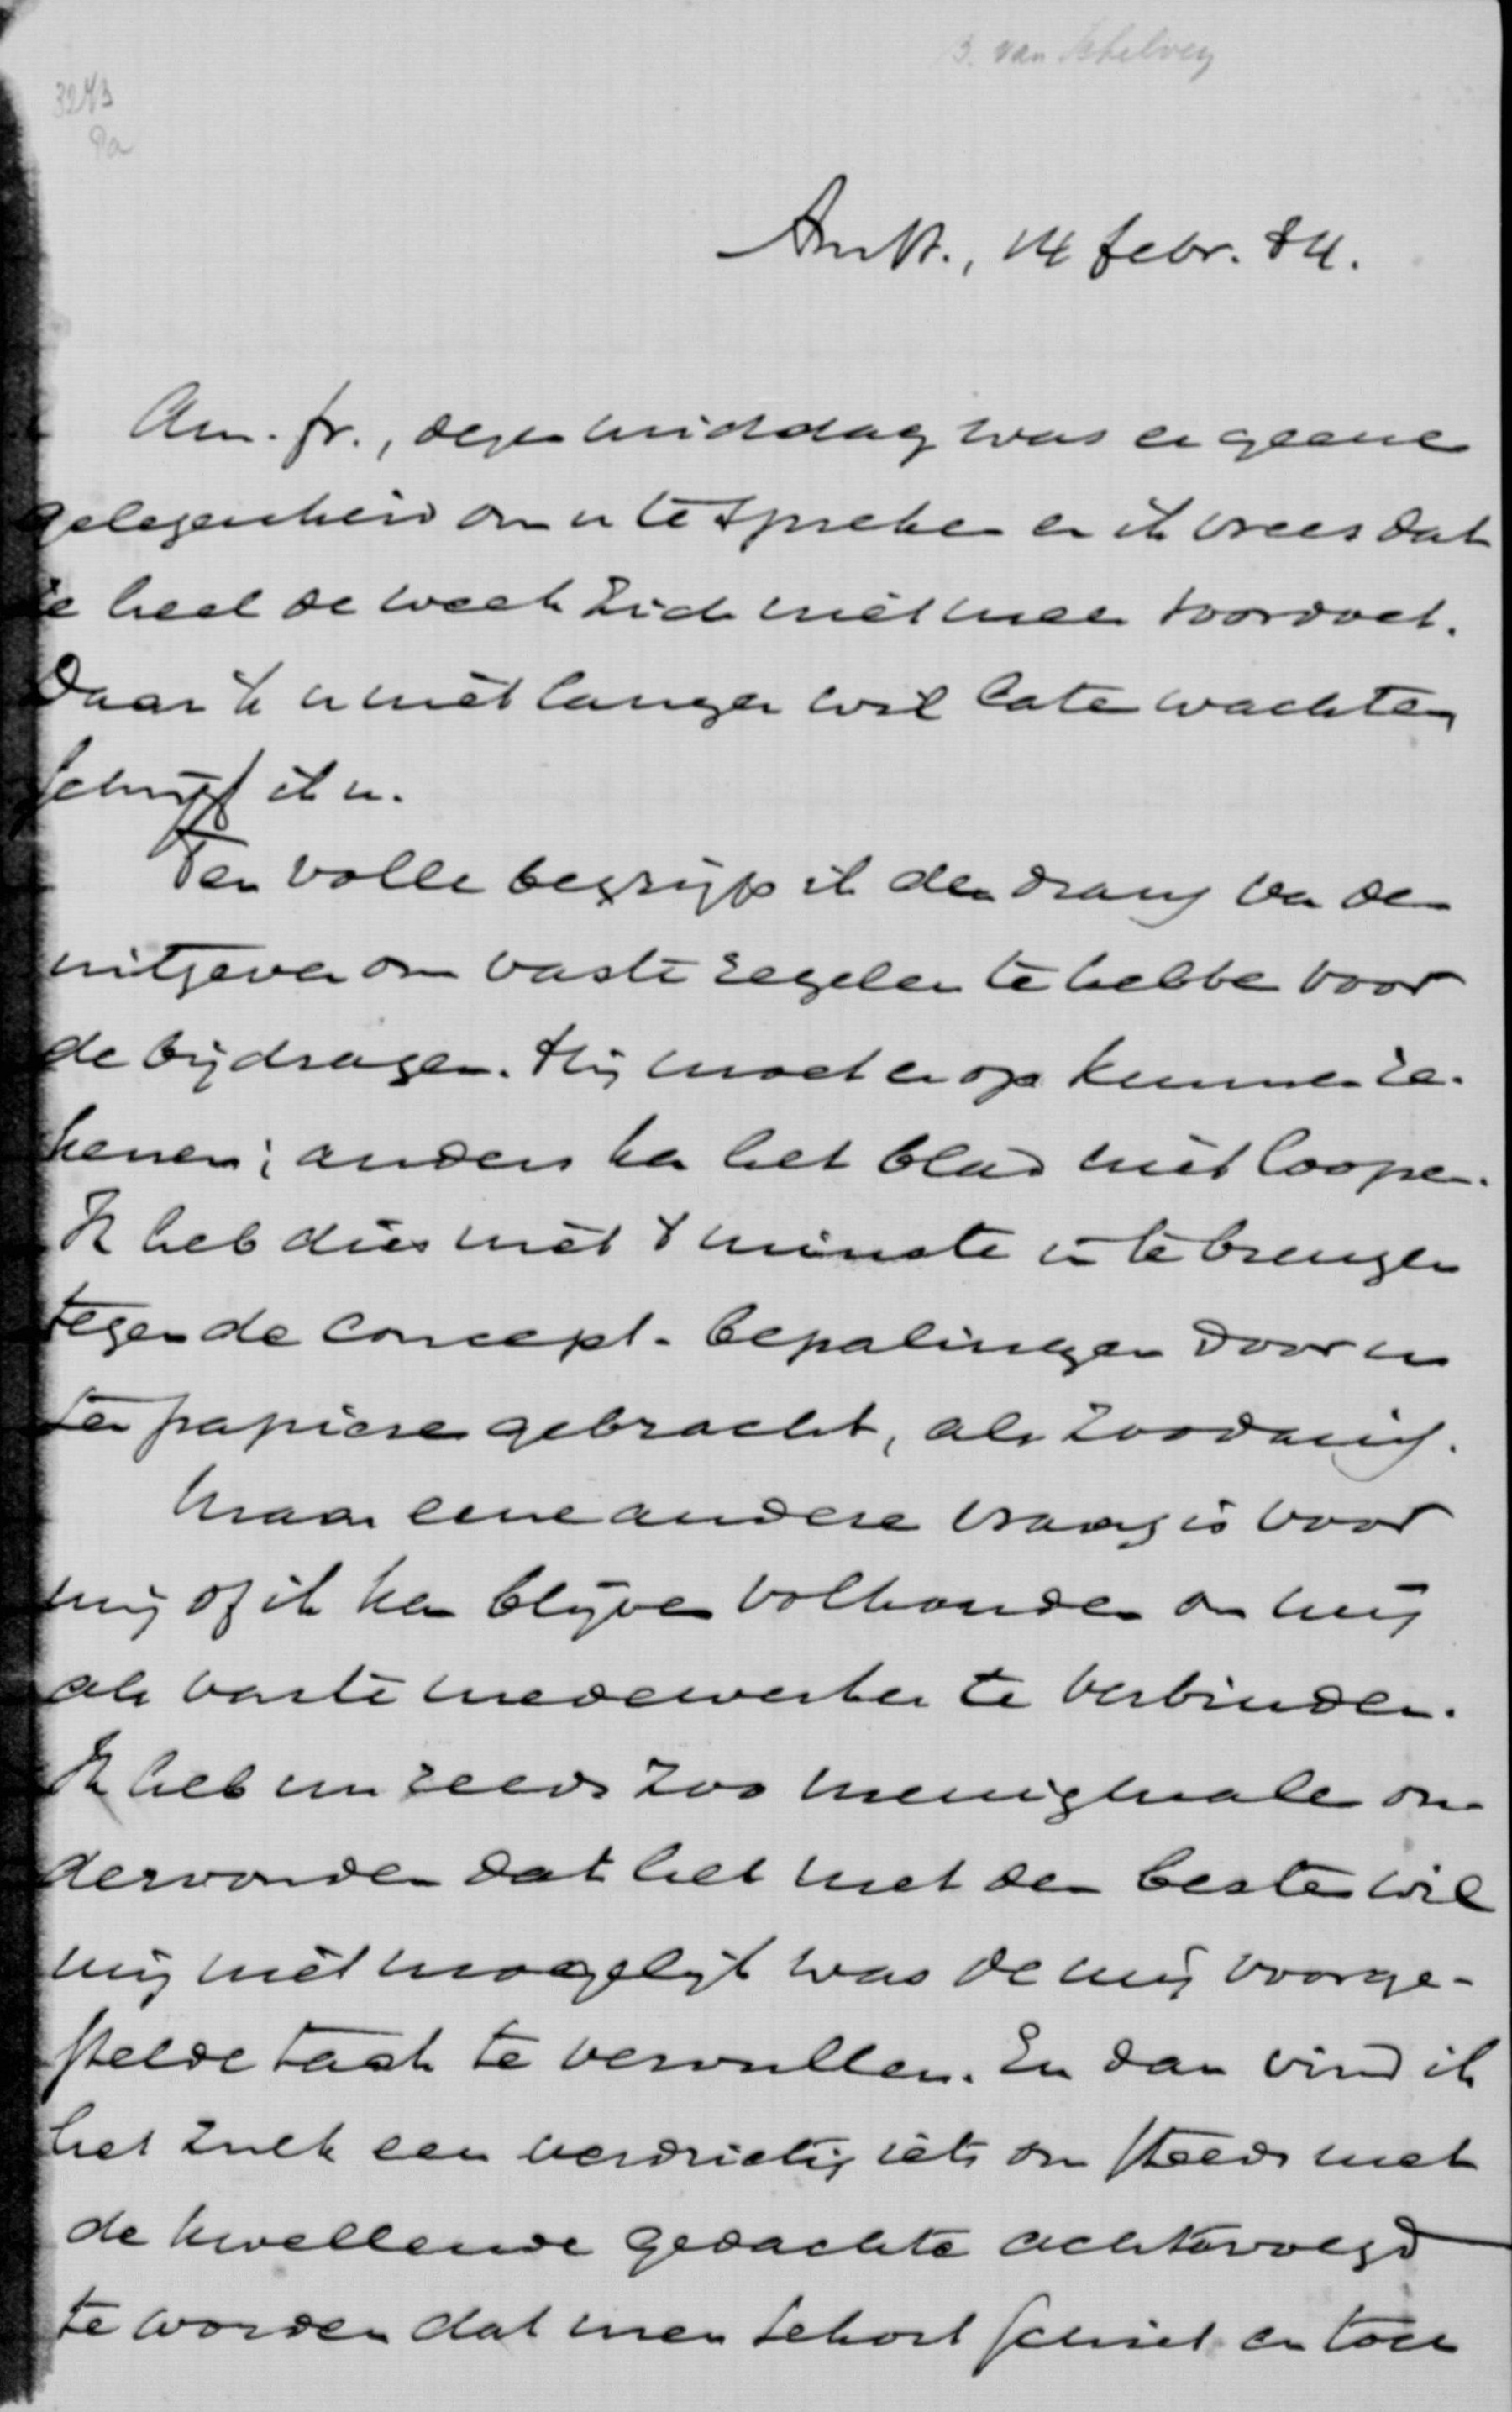 B. van Schelven
3243
Pa
Amst., 14 febr. 84.
Am. fr., dezen middag was er geene
gelegenheid om u te spreken en ik vrees dat
ze heel de week zich niet meer voordoet.
Daar ik u niet langer wil laten wachten
schrijf ik u.
Ten volle begrijp ik den drang van den
uitgever om vaste regelen te hebben voor
de bijdragen. Hij moet er op kunnen re-
kenen; anders kan het blad niet loopen.
Ik heb dus niet 't minste in te brengen
tegen de concept-bepalingen door u
ten papiere gebracht, als zoodanig.
Maar eene andere vraag is voor
mij of ik kan blijven volhouden om mij
als vaste medewerker te verbinden.
Ik heb nu reeds zoo menigmalen on-
dervonden dat het met den besten wil
mij niet mogelijk was de mij voorge-
stelde taak te vervullen. En dan vind ik
het zulk een verdrietig iets om steeds met
de kwellende gedachte achtervolgd
te worden dat men tekort schiet en toch